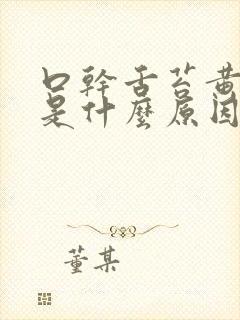 口幹舌苔黄
是什麼原因
董某